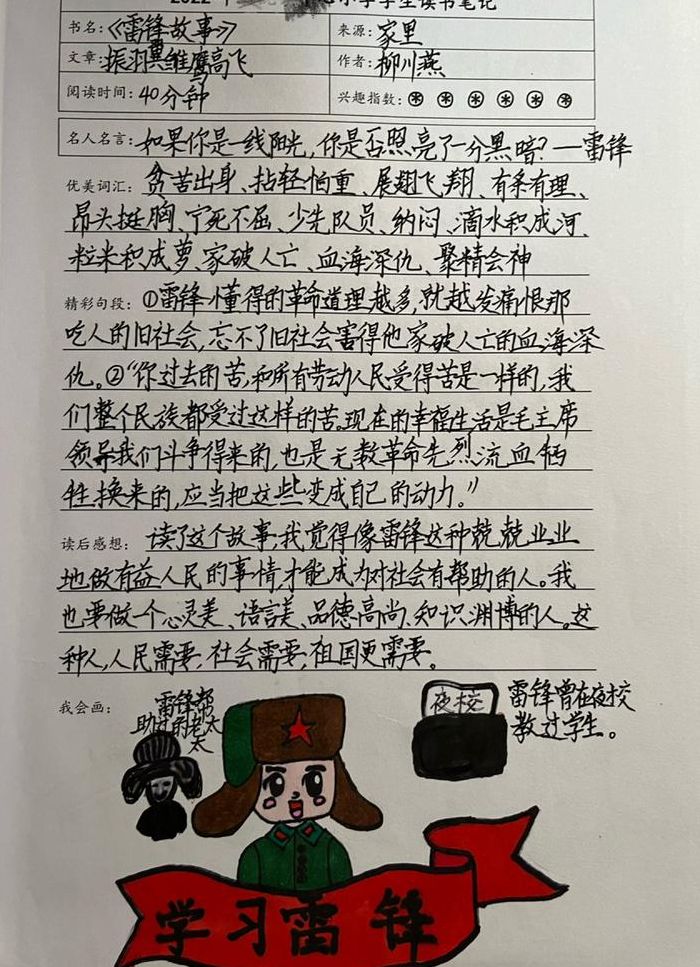 2022年 小学学生读书笔记
书名:《雷锋故事》 来源:家里
文章:振羽翼雏鹰高飞 作者:柳川燕
阅读时间:40分钟 兴趣指数:
名人名言:如果你是一线阳光,你是否照亮了一分黑暗?—雷锋
优美词汇:贫苦出身、拈轻怕重、展翅飞翔、有条有理、
昂头挺胸、宁死不屈、少先队员、纳闷、滴水积成河、
粒米积成萝、家破人亡、血海深仇、聚精会神
精彩句段:①雷锋懂得的革命道理越多,就越发痛恨那
吃人的旧社会,忘不了旧社会害得他家破人亡的血海深
仇。②“你过去的苦,和所有劳动人民受得苦是一样的,我
们整个民族都受过这样的苦。现在的幸福生活是毛主席
领导我们斗争得来的,也是无数革命先烈流血牺
牲换来的,应当把这些变成自己的动力。”
读后感想:读了这个故事,我觉得像雷锋这种兢兢业业
地做有益人民的事情,才能成为对社会有帮助的人。我
也要做一个心灵美、语言美、品德高尚、知识渊博的人。这
种人,人民需要,社会需要,祖国更需要。
我会画:
雷锋帮
助过的老太
太
夜校
雷锋曾在夜校
教过学生。
学习雷锋